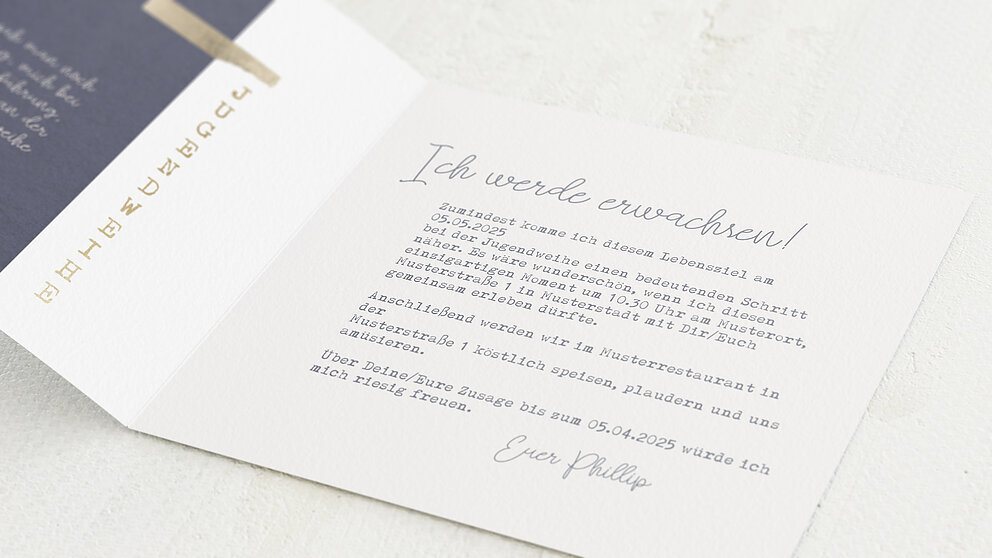 man noch
mich bei
an der
JUGENDWEIHE
Ich werde erwachsen!
Zumindest komme ich diesem Lebensziel am
05.05.2025
bei der Jugendweihe einen bedeutenden Schritt
näher. Es wäre wunderschön, wenn ich diesen
einzigartigen Moment um 10.30 Uhr am Musterort,
Musterstraße 1 in Musterstadt mit Dir/Euch
gemeinsam erleben dürfte.
Anschließend werden wir im Musterrestaurant in
der
Musterstraße 1 köstlich speisen, plaudern und uns
amüsieren.
Über Deine/Eure Zusage bis zum 05.04.2025 würde ich
mich riesig freuen.
Euer Phillip